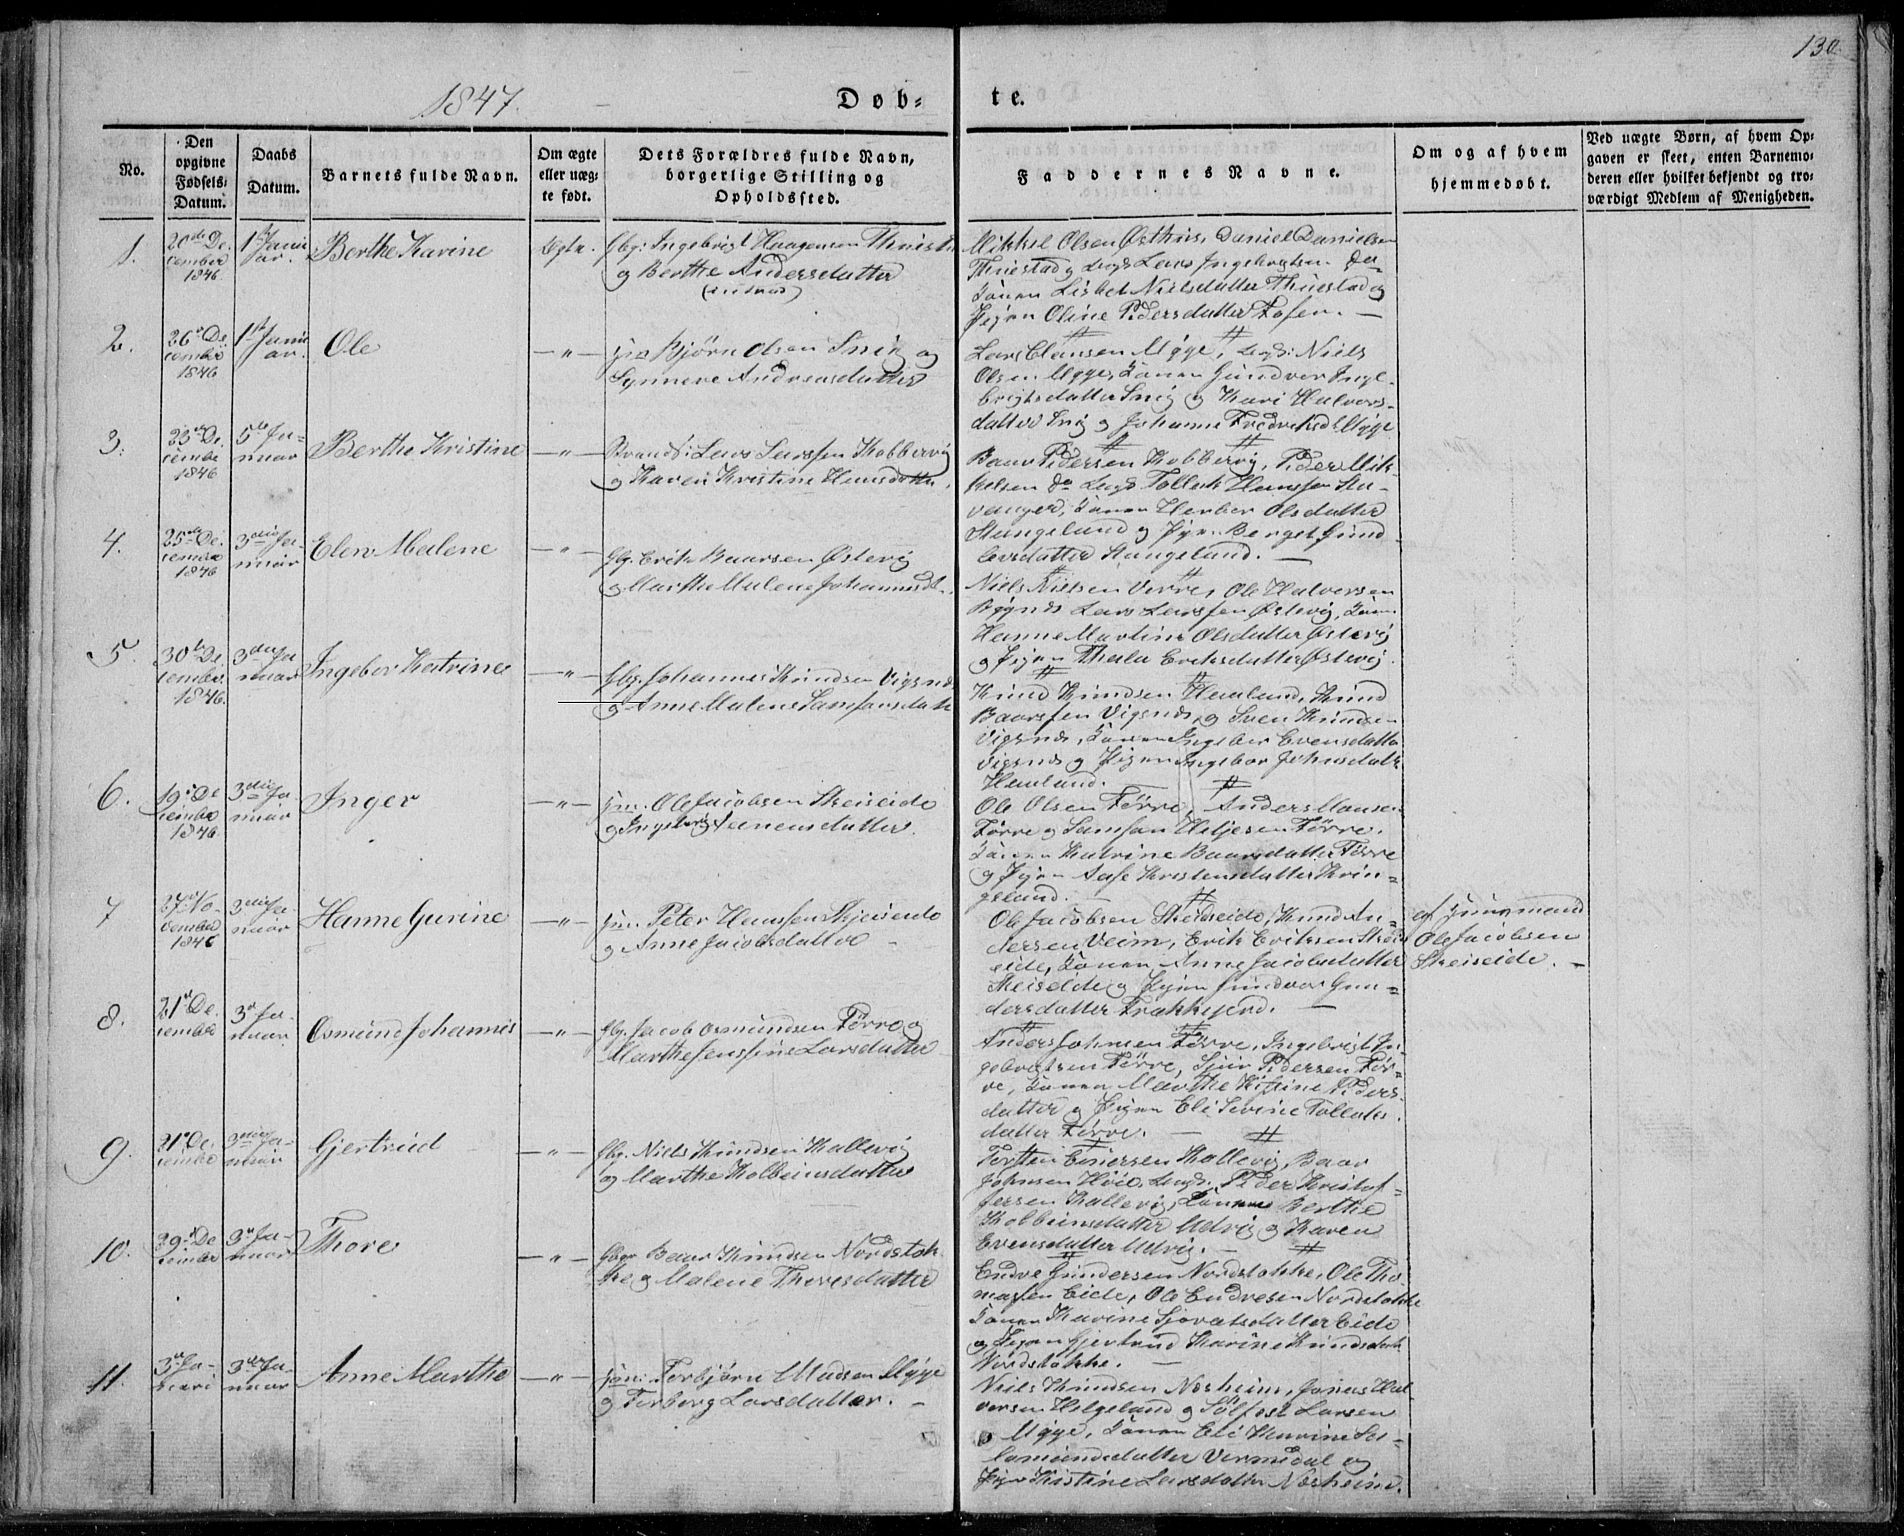 130
1847.
Døb-
te.
No.
Den opgivne Fødsels-Datum.
Daabs Datum.
Barnets fulde Navn.
Om ægte eller uæg-te født.
Dets Forældres fulde Navn, borgerlige Stilling og Opholdssted.
Faddernes Navne.
Om og af hvem hjemmedøbt.
Ved uægte Børn, af hvem Op-gaven er skeet, enten Barnemo-deren eller hvilket bekjendt og tro-værdigt Medlem af Menigheden.
1.
20de De-
cember
1846
1ste Janu
ar.
Berthe Karine
Ægte.
og Berthe Andersdatter
Mikkel Olsen Østhus, Daniel Danielsen
Lars Ingebrigtsen do
Konen Lisbet Nielsdatter
Pigen Oline Pedersdatter Fosen. —
2.
26de De-
cember
1846
1ste Janu
ar.
Ole
— " —
Bjørn Olsen Snig og
Synneve Andreasdatter
Lars Clausen Mÿge, Niels
Olsen Mÿge, Konen Gundvor Inge-
brigtsdatter Snig og Kari Halvors-
datter Snig og Johanne Fredriksd Mÿge
3.
23de De-
cember
1846
5te Ja-
nuar
Berthe Kristine
— " —
Strands: Lars Larssen Kobbervig
og Karen Kristine Hansdatter.
Baar Pedersen Kobbervig, Peder Mik-
kelsen do Tollak Hanssen Sta-
vanger, Konen Herber Olsdatter
Stangeland og Pigen Berget Gund-
lersdatter Stangeland. —
4.
25de De-
cember
1846
3die Ja-
nuar
Elen Malene
— " —
Gbr. Erik Baarsen Østevig
og Marthe Malene Johannesd.
Niels Nielsen Verre, Ole Halversen
Lars Larssen Østevig, Konen
Hanne Martine Olsdatter Østevig
og Pigen Thala Eriksdatter Østevig.
5.
30de De
cember
1846.
3die Ja
nuar
Ingebor Katrine
— " —
Gbr. Johannes Knudsen Vigsnes
og Anne Malene Samsonsdatt
Knud Knudsen Haaland, Knud
Baarssen Vigsnes, og Sven Knudsen
Vigsnes, Konen Ingebor Evensdatter
Vigsnes og Pigen Ingebor Johnsdatter
Haaland. —
6.
19de De
cember
1846
3die Ja-
nuar
Inger
— " —
Ole Jacobsen Skeiseide
Ole Olsen Førre, Anders Hansen
Førre og Samson Heljesen Førre.
Konen Katrine Baarsdatter Førre
og Pigen Aase Kristensdatter Krin-
geland. —
7
27de No-
vember
1846
3die Ja-
nuar
Hanne Gurine
— " —
Peter Hanssen Skjeiseide
og Anne Jacobsdatter
Ole Jacobsen Skeiseide, Knud An-
dersen Veim, Erik Eriksen Skeis
eide, Konen Anne Jacobsdatter
Skeiseide og Pigen Gundvor Gun-
dersdatter
af Huusmand
Ole Jacobsen
Skeiseide. —
8.
21de De.
cember
3de Ja-
nuar
Osmund Johannes
— " —
Gbr. Jacob Osmundsen Førre og
Marthe Jenssine Larsdatter
Anders Johnsen Førre, Ingebrigt In-
gebretsen Førre, Sjur Pedersen Før-
re, Konen Marthe Peders-
datter og Pigen Eli Serine Tollaks-
datter Førre. —
9.
21de De.
cember
3die Ja-
nuar
Gjertrud
— " —
Gbr. Niels Knudsen Kallevig
og Marthe Kolbeinsdatter
Torsten Kallevig, Baar
Johnsen Peder Kristof-
fersen Kallevig, Konen Berthe
Kolbeinsdatter Udvig og Karen
Evensdatter Udvig. —
10.
29de De
cember
3de Ja-
nuar
Thore
— " —
Gbr. Baar Knudsen Nordstok-
ke og Malene Thoresdatter
Endre Gundersen Nordstokke, Ole Tho-
massen Eide, Ole Endresen Nordstokke
Konen Karine Sjovatsdatter Eide
og Pigen Gjertrud Karine Knudsdatt
Nordstokke. —
11.
3de Ja-
nuari
3de Ja-
nuar
Anne Marthe
— " —
Torbjørn Madsen Mÿge
og Torborg Larsdatter. —
Niels Knudsen Nesheim, Jonas Hal-
versen Helgeland og Solfest Larsen
Mÿge, Konen Eli Karine Sa-
lomonsdatter Vermedal og
Pigen Kristine Larsdatter Nesheim.